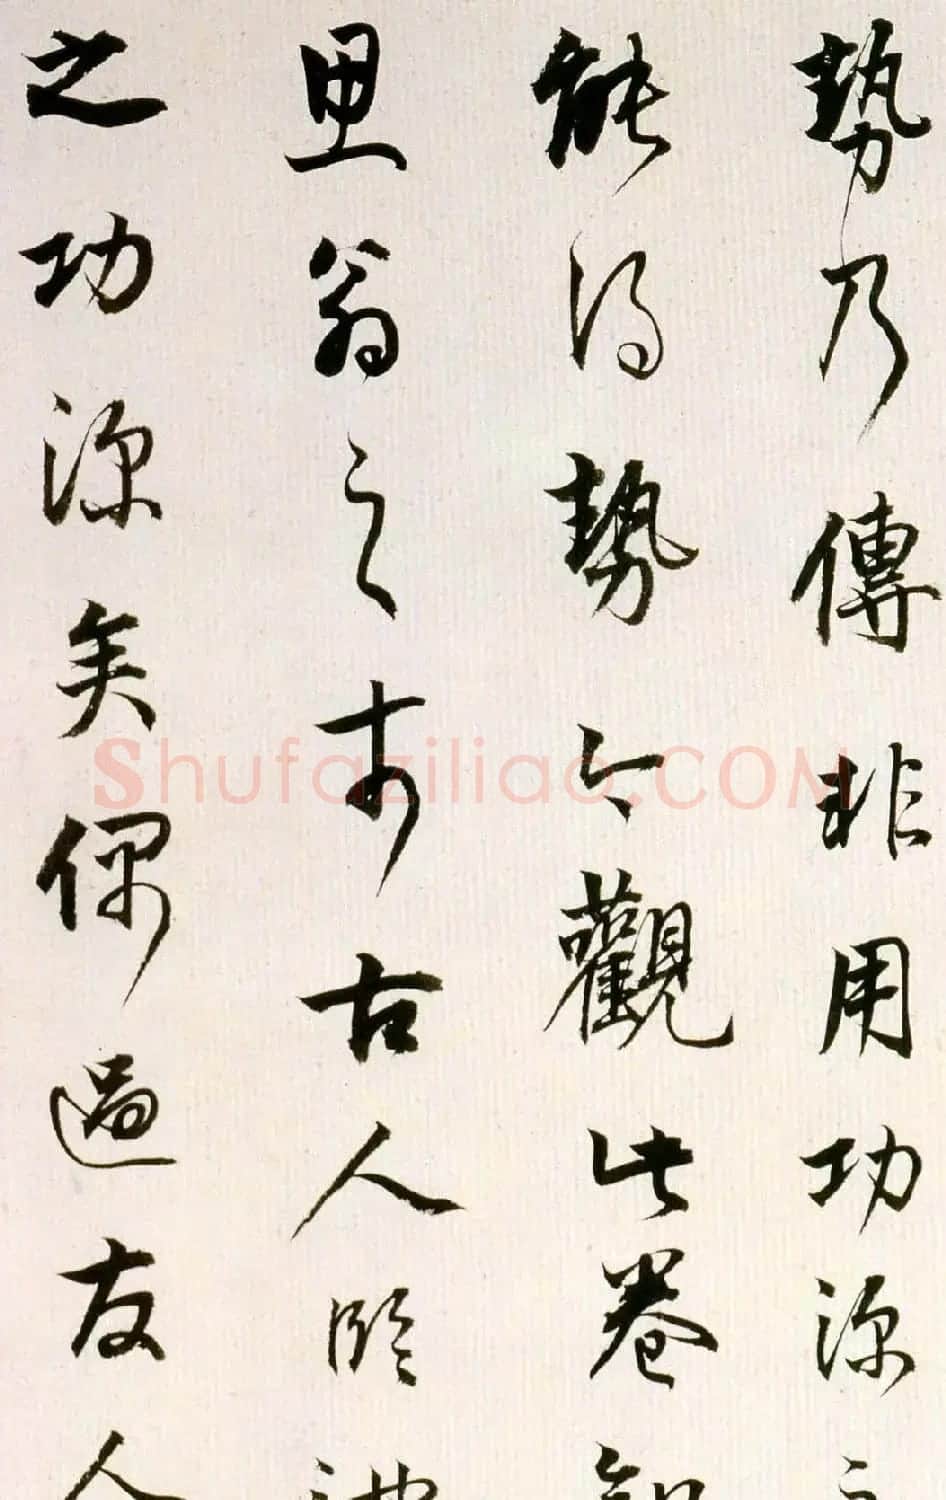 勢乃傳非用功深
能得勢今觀此卷知
思翁之於古人臨池
之功深矣偶過友人
Shufaziliao.COM